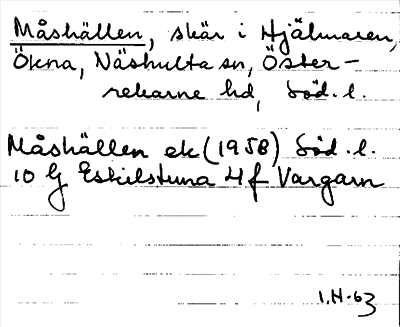 Måshällen, skär i Hjälmaren,
Ökna, Näshulta sn, Öster-
rekarne hd, Söd. l.
Måshällen ek (1958) Söd. l.
10 G Eskilstuna 4 f Vargarn
1.H-63